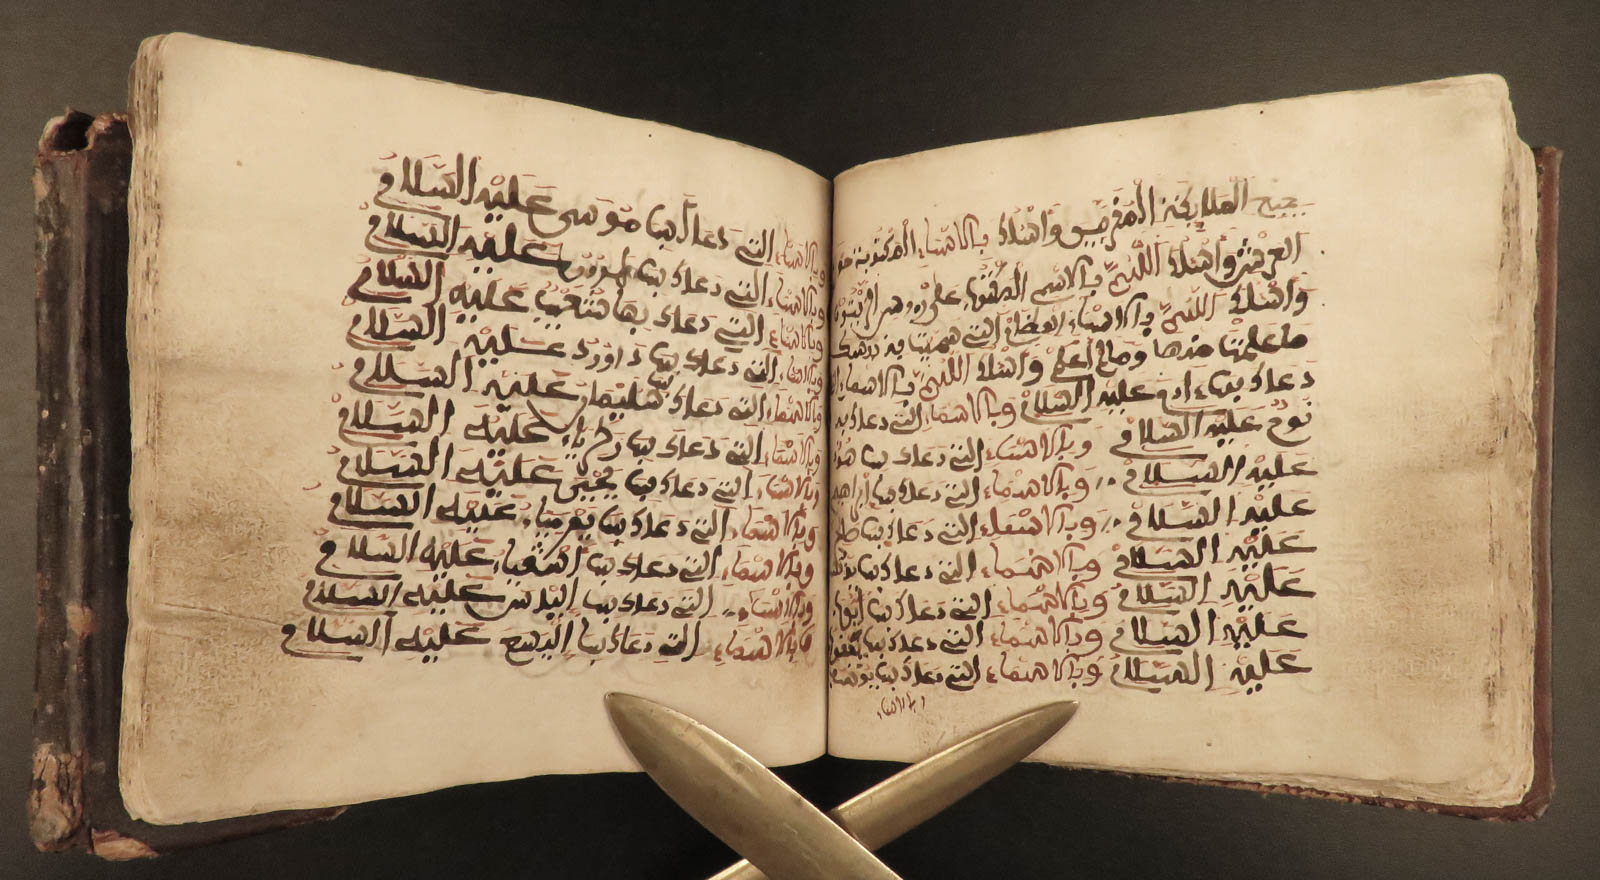 جميع الملايكة المقربين واسئلك بالاسماء المكتوبة حول
العرش واسئلك اللهم بالاسم المكتوب على ورق الزيتون
واسئلك اللهم بالاسماء العظام التي سميت بها نفسك
ما علمت منها وما لم اعلم واسئلك اللهم بالاسماء التي
دعاك بها ءادم عليه السلام وبالاسماء التي دعاك بها
نوح عليه السلام وبالاسماء التي دعاك بها هود
عليه السلام وبالاسماء التي دعاك بها ابراهيم
عليه السلام وبالاسماء التي دعاك بها صالح
عليه السلام وبالاسماء التي دعاك بها يونس
عليه السلام وبالاسماء التي دعاك بها ايوب
عليه السلام وبالاسماء التي دعاك بها يعقوب
عليه السلام وبالاسماء التي دعاك بها يوسف
وبالاسماء
وبالاسماء التي دعاك بها موسى عليه السلام
وبالاسماء التي دعاك بها هرون عليه السلام
وبالاسماء التي دعاك بها شعيب عليه السلام
وبالاسماء التي دعاك بها داورد عليه السلام
وبالاسماء التي دعاك بها سليمان عليه السلام
وبالاسماء التي دعاك بها زكرياء عليه السلام
وبالاسماء التي دعاك بها يحيى عليه السلام
وبالاسماء التي دعاك بها يعرمياء عليه السلام
وبالاسماء التي دعاك بها اشعياء عليه السلام
وبالاسماء التي دعاك بها الياس عليه السلام
وبالاسماء التي دعاك بها اليسع عليه السلام